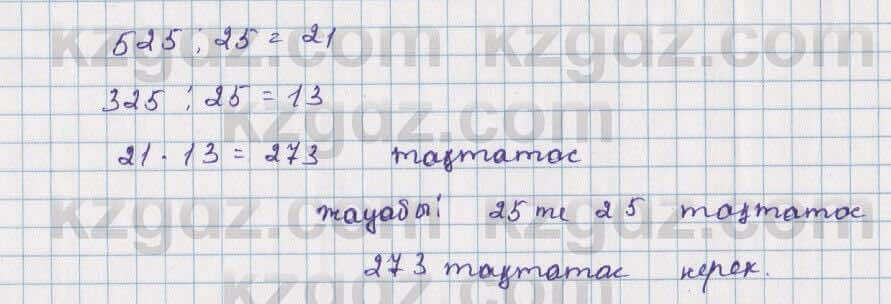 525 : 25 = 21
325 : 25 = 13
21 · 13 = 273 тақтатас
жауабы: 25 те 25 тақтатас
273 тақтатас керек.
kzgdz.com kzgdz.com
kzgdz.com
kzgdz.com kzgdz.com
kzgdz.com